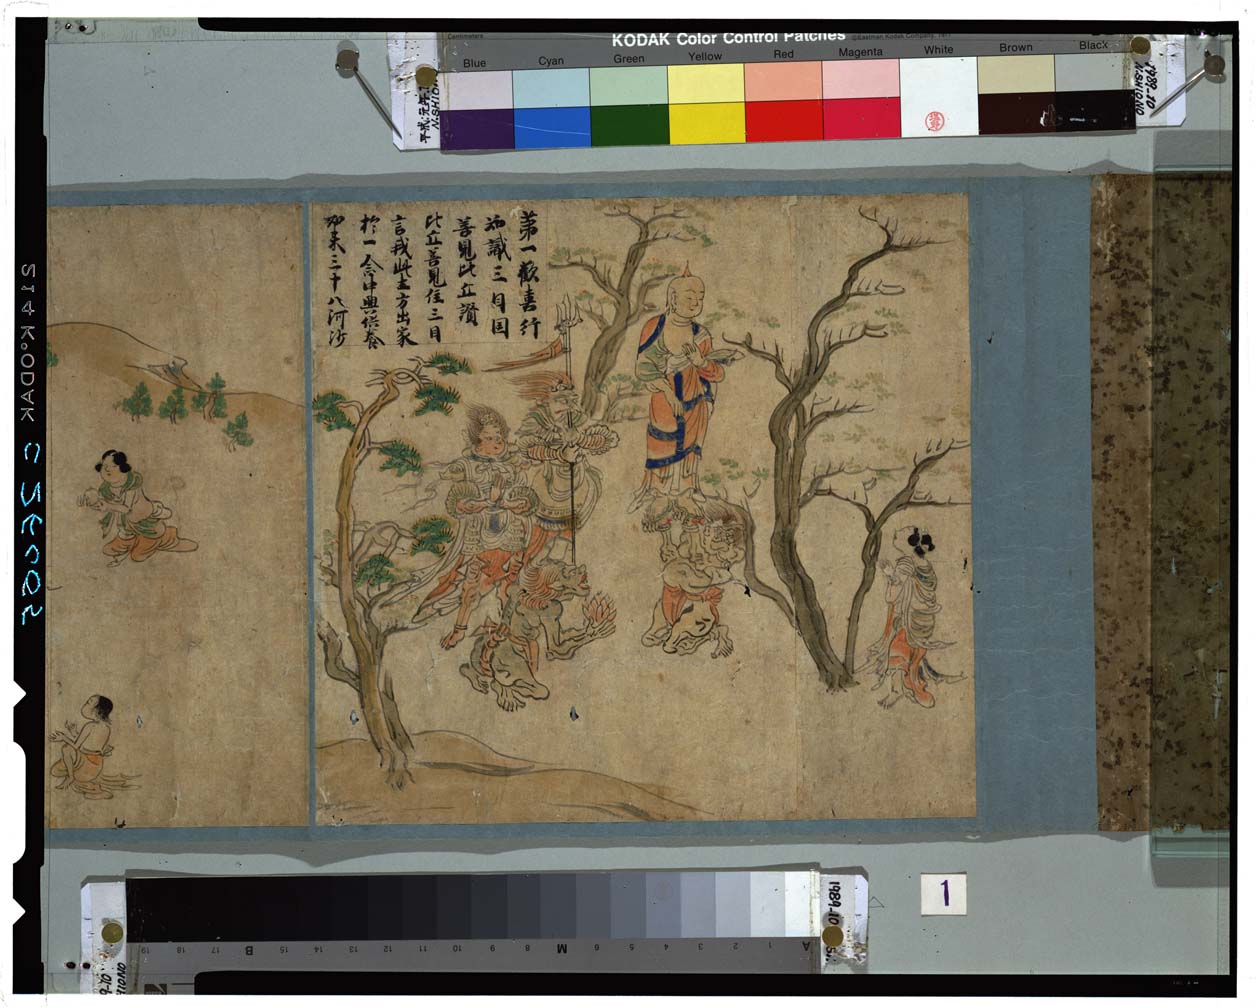 KODAK Color Control Patches
Centimeters
©Eastman Kodak Company, 1977
Blue
Cyan
Green
Yellow
Red
Magenta
White
Brown
Black
1989.10
N.SHIONO
第一歓喜行
知識三目国
善見比丘讃
比丘善見住三目
言我此土方出家
於一念中興供養
如来三十八河沙
1
1989.10
A 1 2 3 4 5 6 M 8 9 10 11 12 13 14 15 B 17 18 19